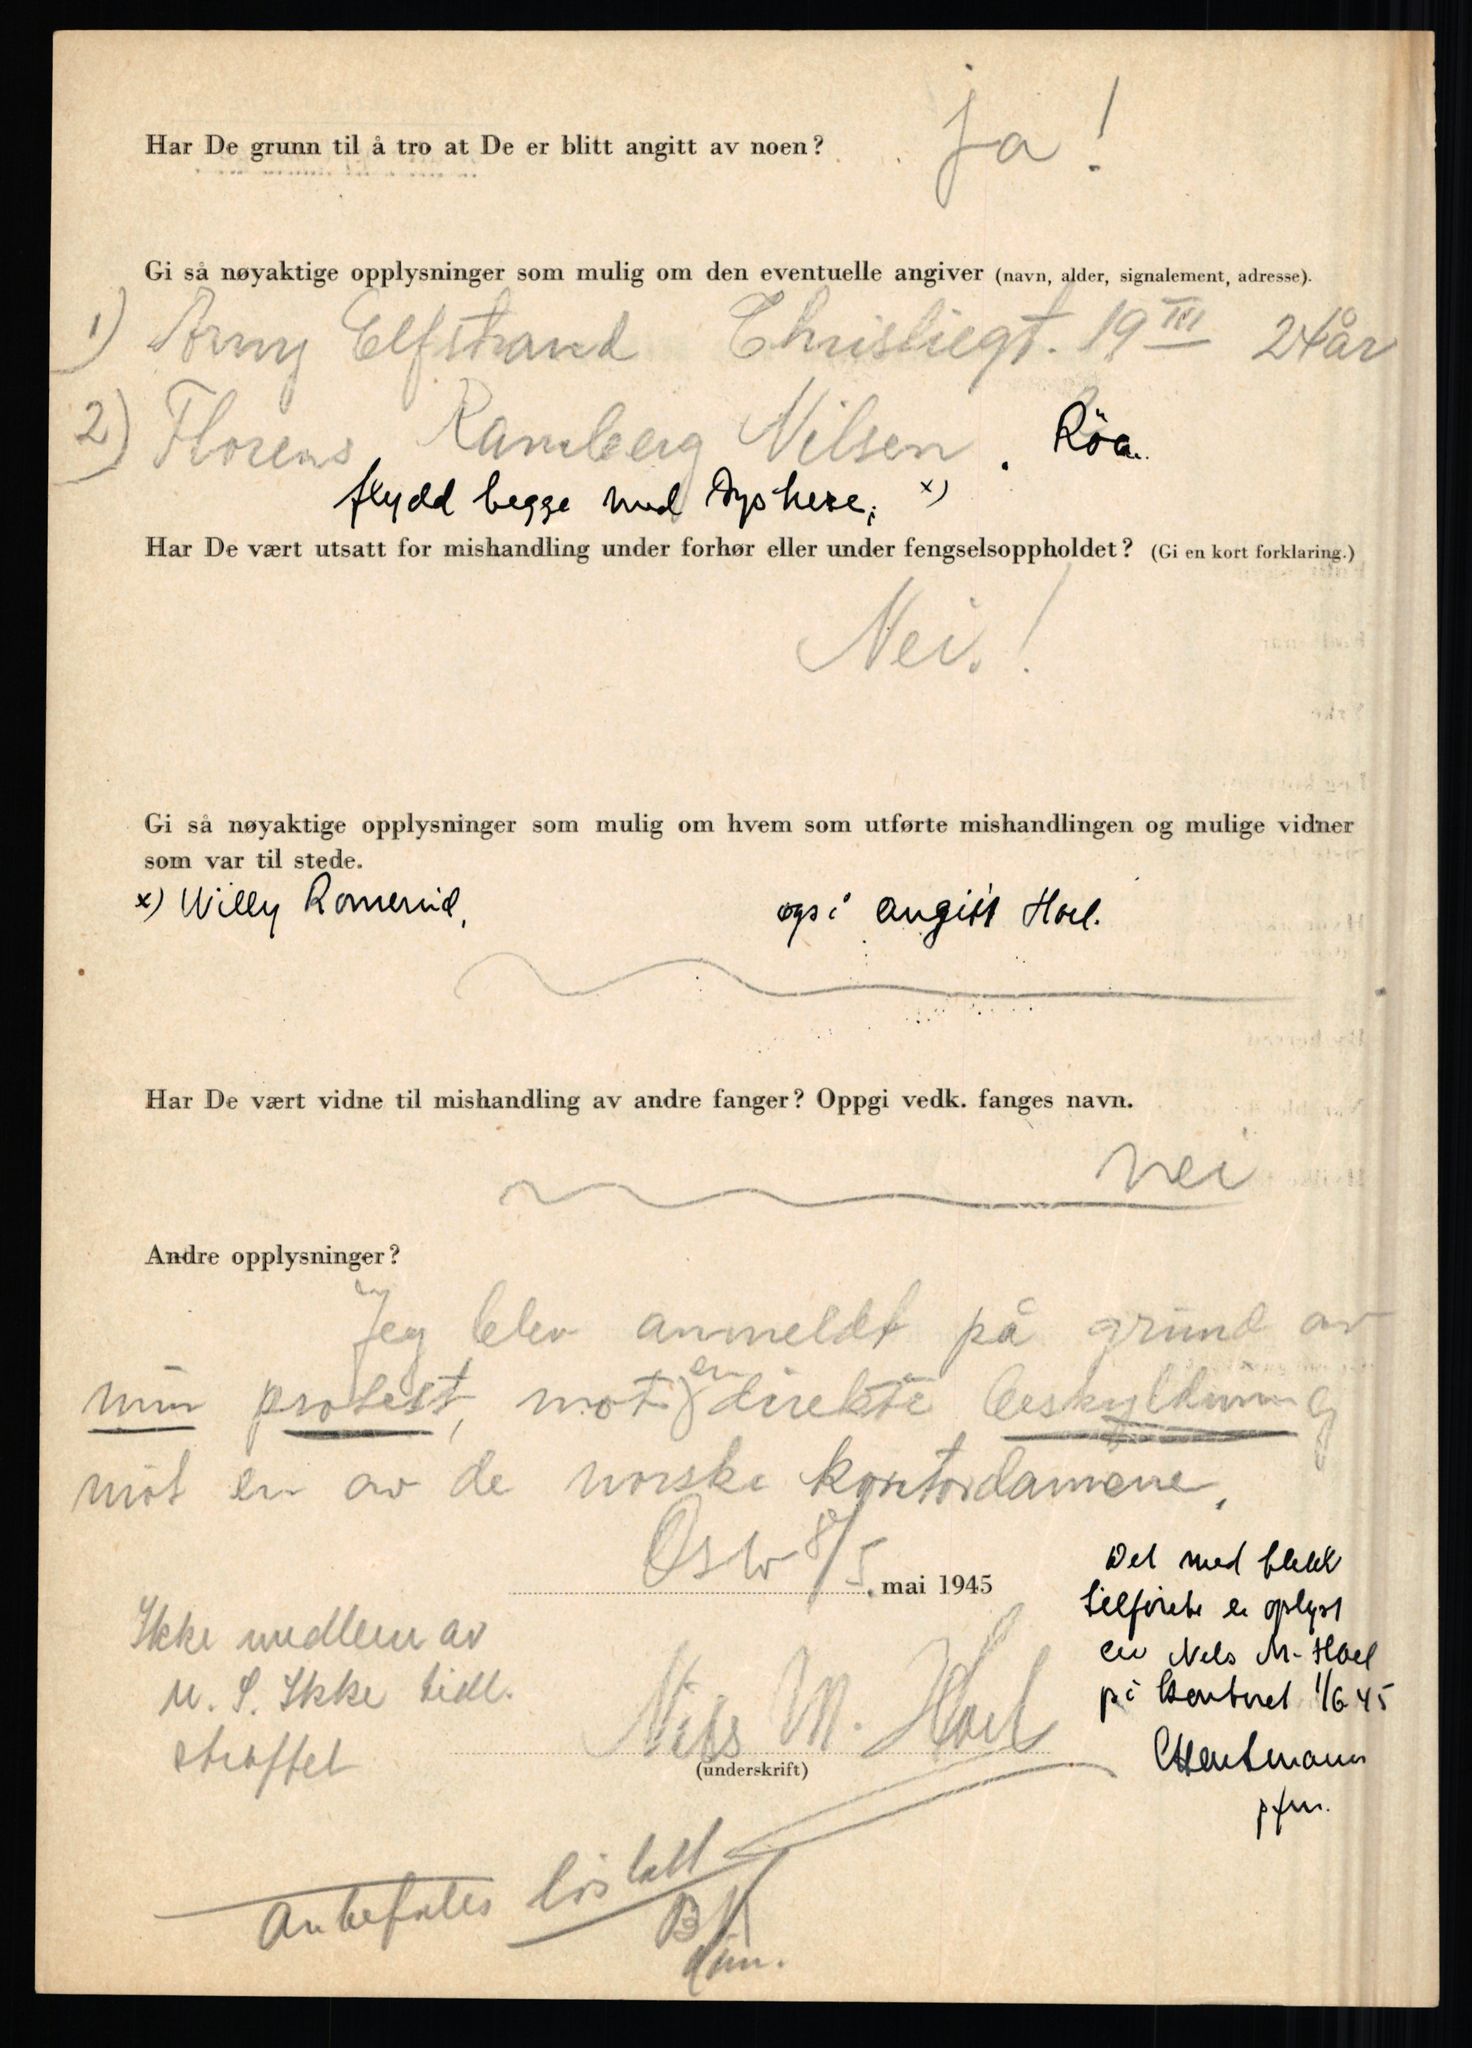 Har De grunn til å tro at De er blitt angitt av noen?
Ja!
Gi så nøyaktige opplysninger som mulig om den eventuelle angiver (navn, alder, signalement, adresse).
1) Elfstrand Christiegt. 19 III 24 år
2) Florens Ramberg Nilsen. Röa.
flydd begge med x)
Har De vært utsatt for mishandling under forhør eller under fengselsoppholdet? (Gi en kort forklaring.)
Nei.!
Gi så nøyaktige opplysninger som mulig om hvem som utførte mishandlingen og mulige vidner
som var til stede.
x) Willy også angitt Hoel.
Har De vært vidne til mishandling av andre fanger? Oppgi vedk. fanges navn.
nei
Andre opplysninger?
Jeg blev anmeldt på grund av
min protest, mot en direkte beskyldning
mot en av de norske kontordamene.
Oslo 8/5. mai 1945
Ikke medlem av
N. S. Ikke tidl.
straffet
Nils M. Hoel
(underskrift)
Det med blekk
tilførte er oplyst
av Nels M. Hoel
på kontoret 1/6 45
pfm.
Anbefales løslatt